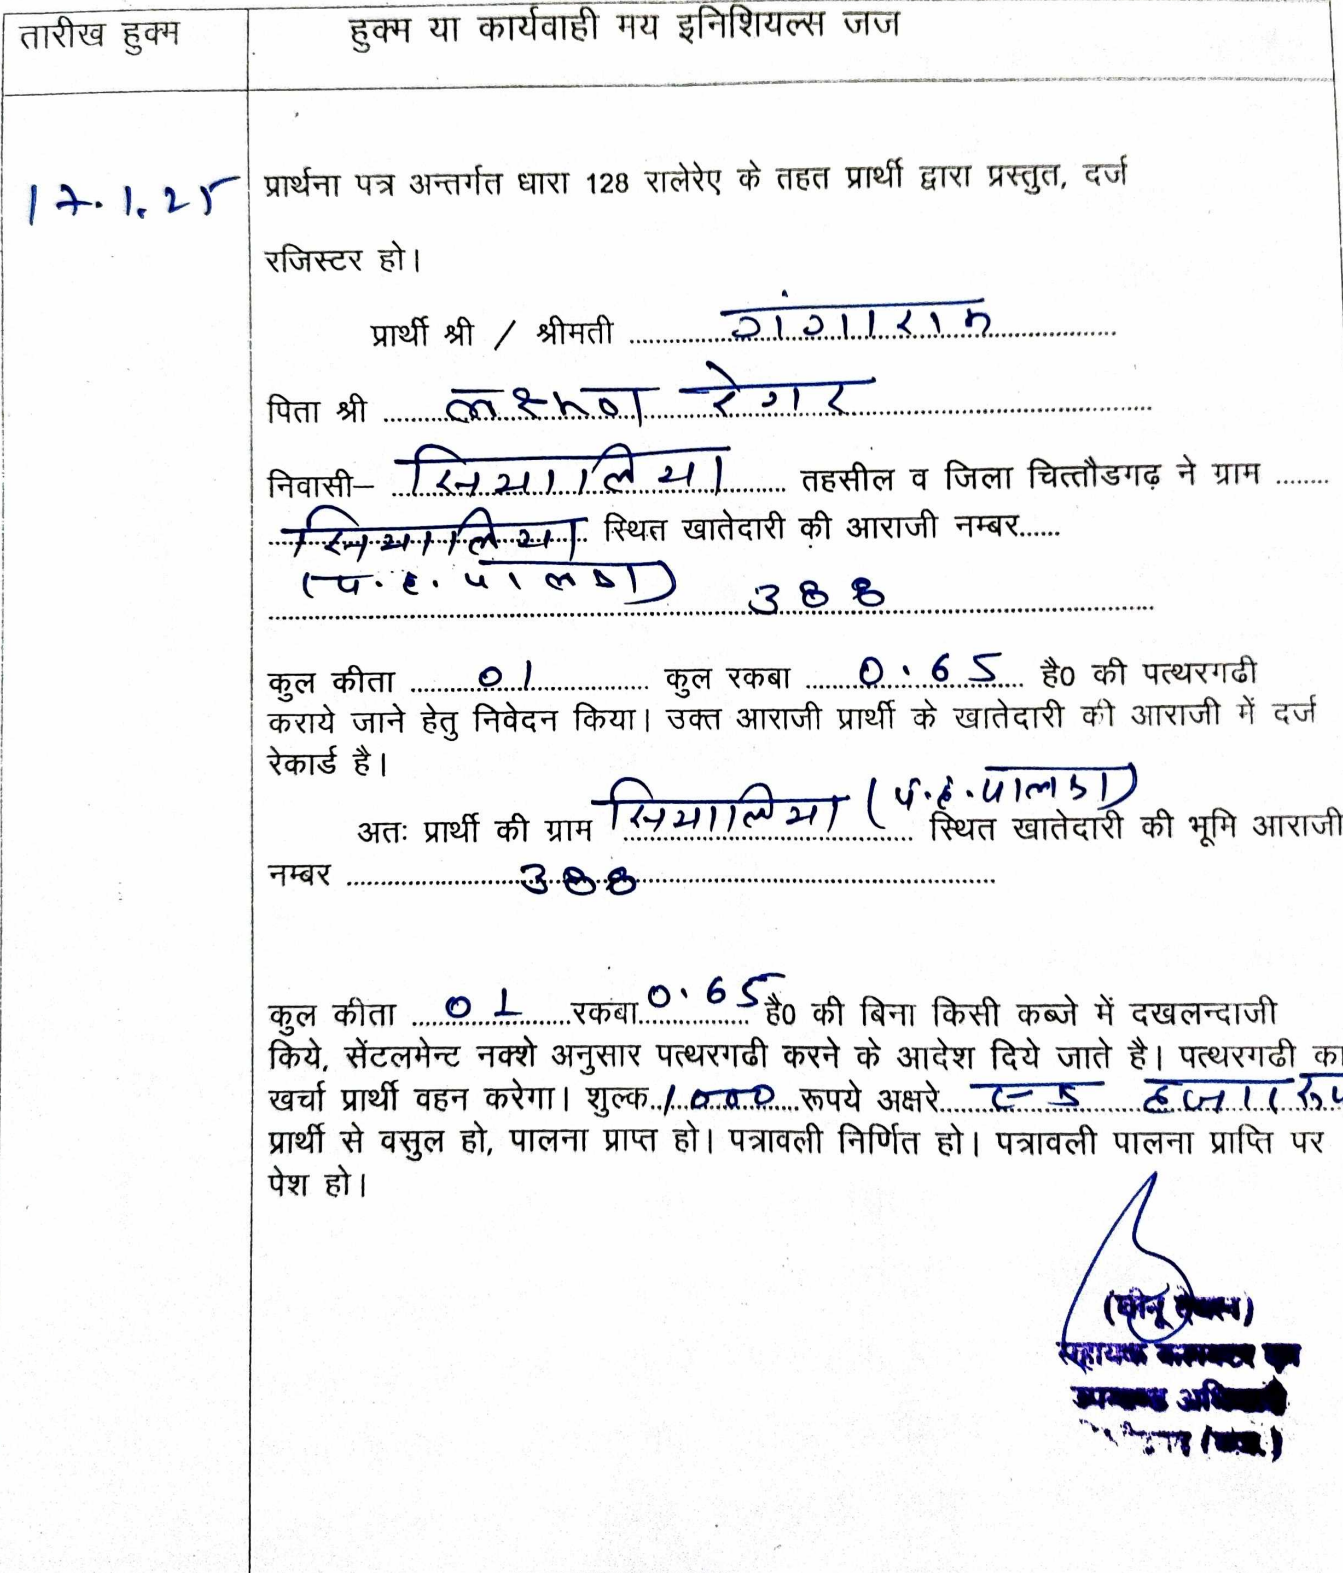 तारीख हुक्म हुक्म या कार्यवाही मय इनिशियल्स जज
17.1.25 प्रार्थना पत्र अन्तर्गत धारा 128 रालेरेए के तहत प्रार्थी द्वारा प्रस्तुत, दर्ज
रजिस्टर हो।
प्रार्थी श्री / श्रीमती गंगाराम
पिता श्री लक्ष्मण रेगर
निवासी– सियालिया तहसील व जिला चित्तौडगढ़ ने ग्राम
सियालिया स्थित खातेदारी की आराजी नम्बर
(प.ह. पालका)
388
कुल कीता 01 कुल रकबा 0.65 है0 की पत्थरगढी
कराये जाने हेतु निवेदन किया। उक्त आराजी प्रार्थी के खातेदारी की आराजी में दर्ज
रेकार्ड है।
अतः प्रार्थी की ग्राम सियालिया (प.ह. पालका) स्थित खातेदारी की भूमि आराजी
नम्बर 388
कुल कीता 01 रकबा 0.65 है0 की बिना किसी कब्जे में दखलन्दाजी
किये, सेंटलमेन्ट नक्शे अनुसार पत्थरगढी करने के आदेश दिये जाते है। पत्थरगढी का
खर्चा प्रार्थी वहन करेगा। शुल्क 1000 रूपये अक्षरे एक हजार रूप
प्रार्थी से वसुल हो, पालना प्राप्त हो। पत्रावली निर्णित हो। पत्रावली पालना प्राप्ति पर
पेश हो।
सहायक कलक्टर एवं
उपखण्ड अधिकारी